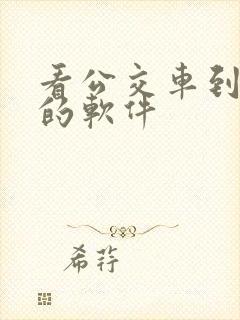 看公交車到
的軟件
希荇